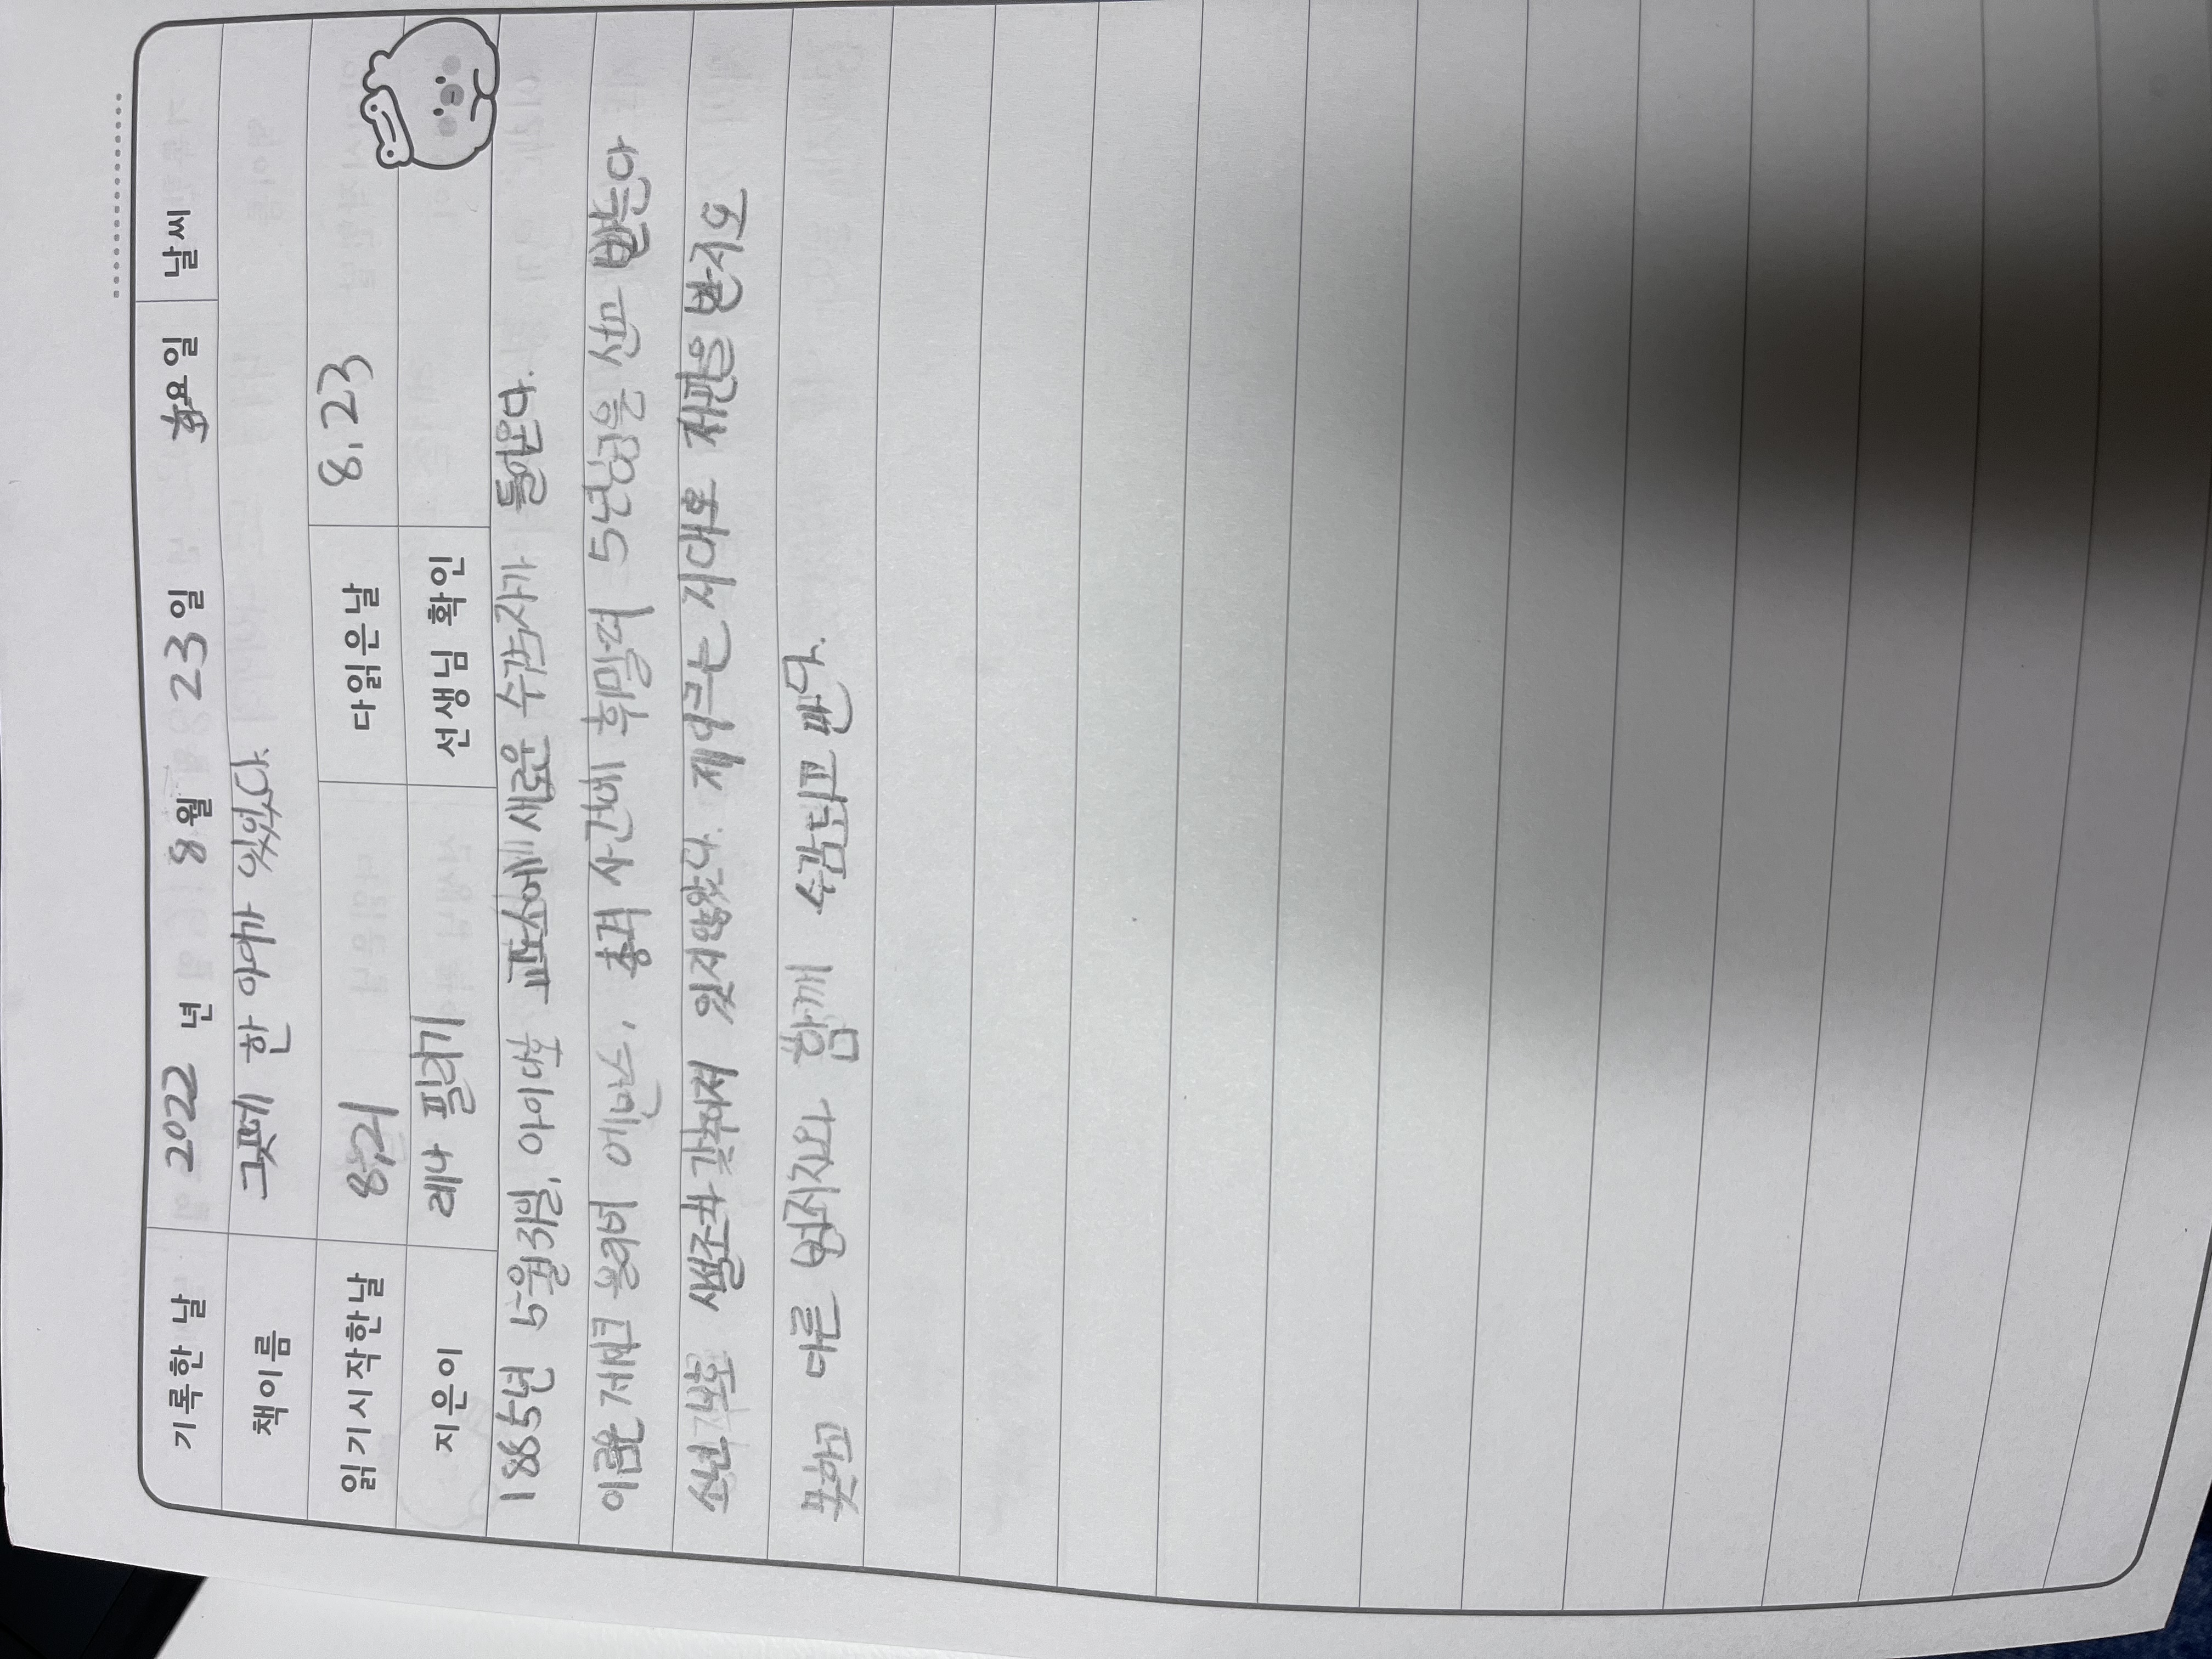 기록한 날 2022 년 8 월 23 일 화요일 날씨
책이름 그곳에 한 아이가 있었다.
읽기시작한날 8.21 다읽은날 8.23
지은이 레나 필리기 선생님 확인
1885년 5월 31일, 아이다호 교도소에 새로운 수감자가 들어온다.
이름은 제이크 올리버 에반스, 총격 사건에 휘말려 5년형을 선고 받는다
소년 보호 시설조차 갖춰져 있지않았다. 제이크는 제대로 재판을 받지도
못하고 다른 범죄자와 함께 수감되고 만다.